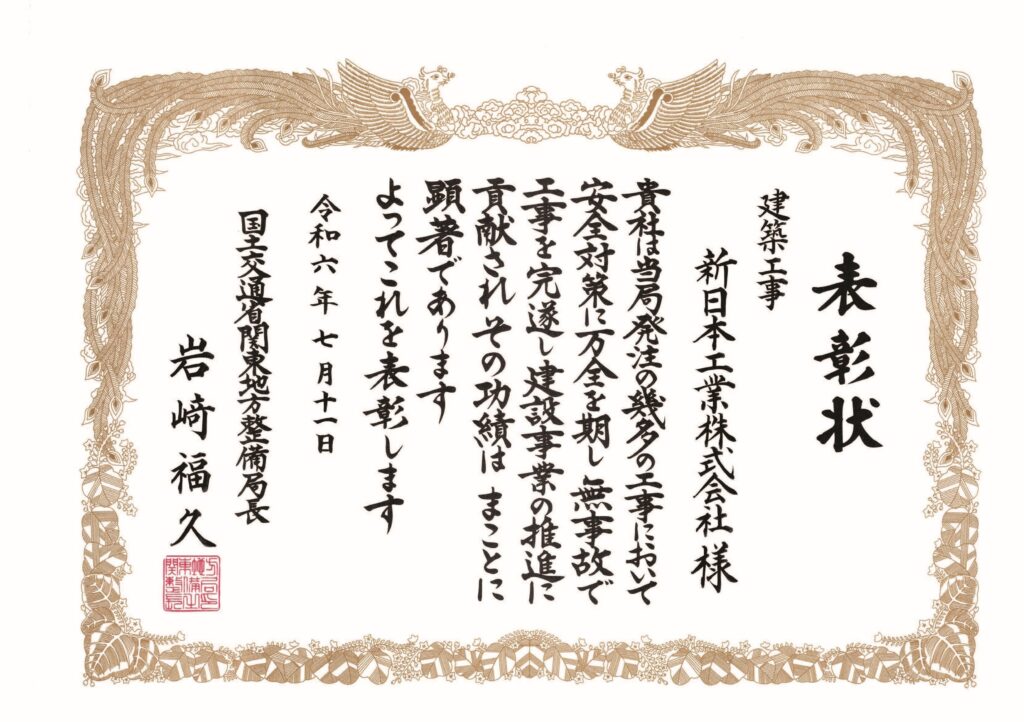 表彰状
建築工事
新日本工業株式会社 様
貴社は当局発注の幾多の工事において
安全対策に万全を期し 無事故で
工事を完遂し建設事業の推進に
貢献されその功績は まことに
顕著であります
よってこれを表彰します
令和六年七月十一日
国土交通省関東地方整備局長
岩﨑福久